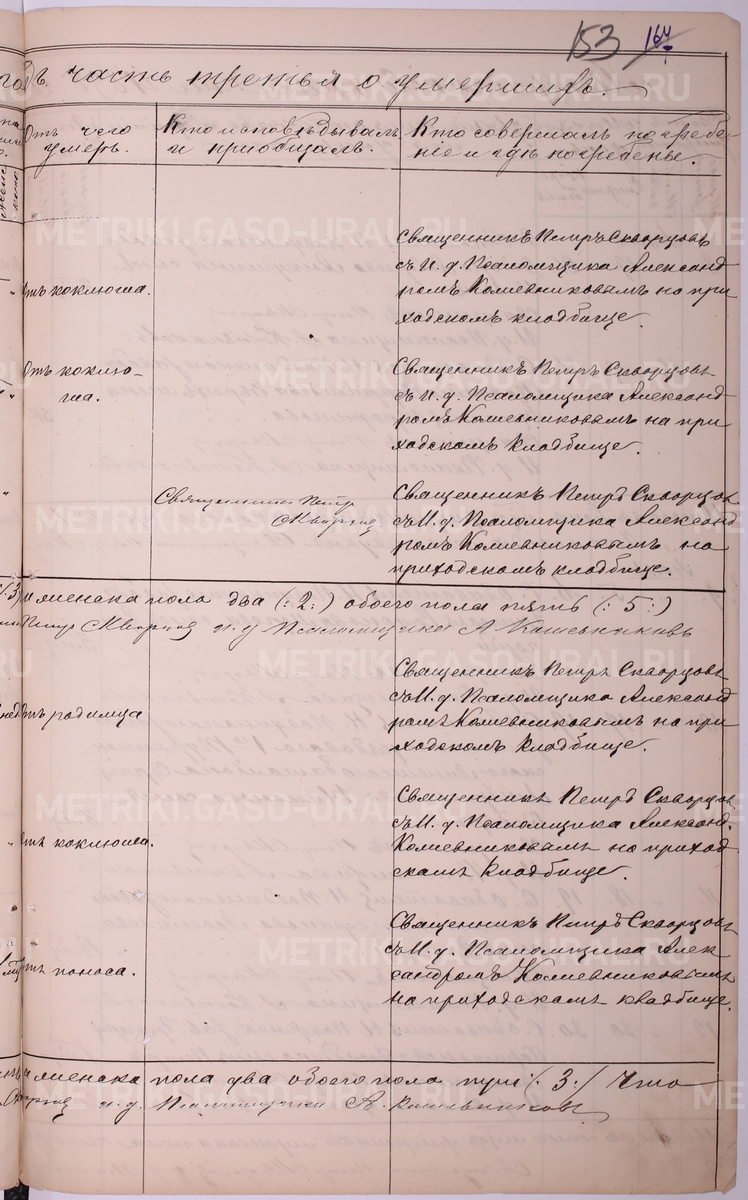 153 164
годъ часть третья о умершихъ.
Отъ чего
умеръ.
Кто исповѣдывалъ
и приобщалъ.
Кто совершалъ погребе-
ніе и гдѣ погребены.
Священникъ Петръ Скворцовъ
съ И. д. Псаломщика Александ
ромъ Колшевниковымъ на при
ходскомъ кладбище.
отъ коклюша.
Священникъ Петръ Скворцовъ
съ И. д. Псаломщика Александ
ромъ Колшевниковымъ на при
ходскомъ кладбище.
Отъ коклю-
ша.
Священникъ Петр
Скворцов
Священникъ Петръ Скворцов
съ И. д. Псаломщика Александ
ромъ Колшевниковымъ на
приходскомъ кладбище.
женска пола два (: 2 :) обоего пола пять (: 5 :)
Петр Скворцов и. д. Псаломщика А.
Священникъ Петръ Скворцовъ
съ И. д. Псаломщика Александ
ромъ Колшевниковымъ на при
ходскомъ кладбище.
отъ родимца
Священникъ Петръ Скворцов
съ И. д. Псаломщика Александ.
Колшевниковымъ на приход
скамъ кладбище.
отъ коклюша.
Священникъ Петръ Скворцовъ
съ И. д. Псаломщика Алек
сандромъ Колшевниковымъ
на приходскамъ квадбище.
отъ поноса.
женска пола два обоего пола три /: 3 :/ Что
и. д. Псаломщика А.
METRIKI.GASO-URAL.RU